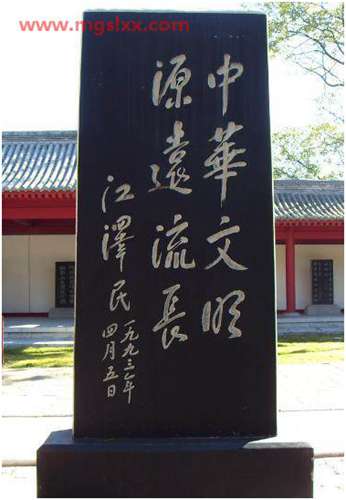 www.mgslxx.com
中華文明
源遠流長
江澤民
一九九三年
四月五日